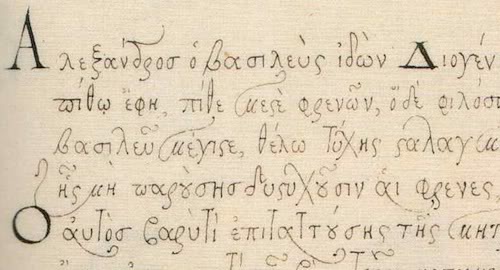 Ἀλεξάνδρος ὁ βασιλεὺς ἰδὼν Διογέν
πίθῳ ἔφη, πίθε μεστὲ φρενῶν, ὁ δὲ φιλόσ
βασιλεῦ μέγιστε, θέλω τύχης σταλαγμ
ἧς μὴ παρούσης δυστυχοῦσιν αἱ φρένες
Ὁ αὐτὸς βαρύτι ἐπιταττούσης τῆς μητ